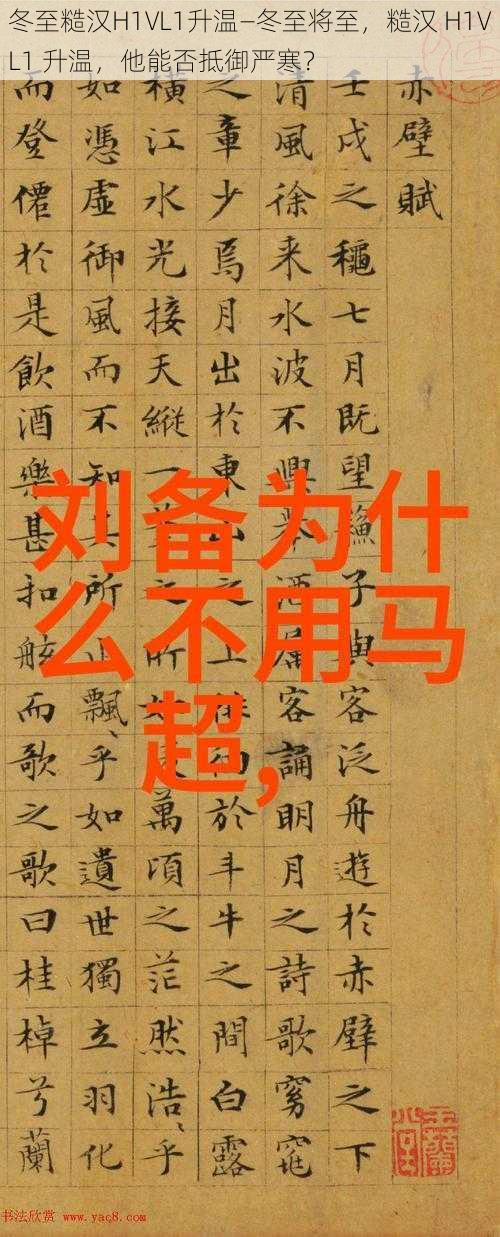 冬至糙汉H1VL1升温–冬至将至，糙汉 H1V
L1 升温，他能否抵御严寒？
赤壁賦
壬戌之穐七月既望蘓子與客泛舟遊於赤壁之下
清風徐来水波不興舉酒屬客誦明月之詩歌窈窕
之章少焉月出於東山之上徘徊於斗牛之間白露
橫江水光接天縱一葦之所如凌萬頃之茫然浩、乎
如憑虛御風而不知其所止飄、乎如遺世獨立羽化
而登僊於是飲酒樂甚扣舷而歌之歌曰桂棹兮蘭
刘备为什
么不用马
超,
书法欣赏 www.yac8.com